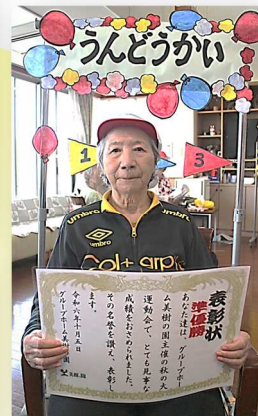 うんどうかい
1
3
umbro
umbro
umbro
表彰状
準優勝
あなた達は、グループホー
ム美樹の園主催の秋の大
運動会で、とても見事な
成績をおさめられました。
その名誉を讃え、表彰し
ます。
令和六年十月五日
グループホーム美樹の園